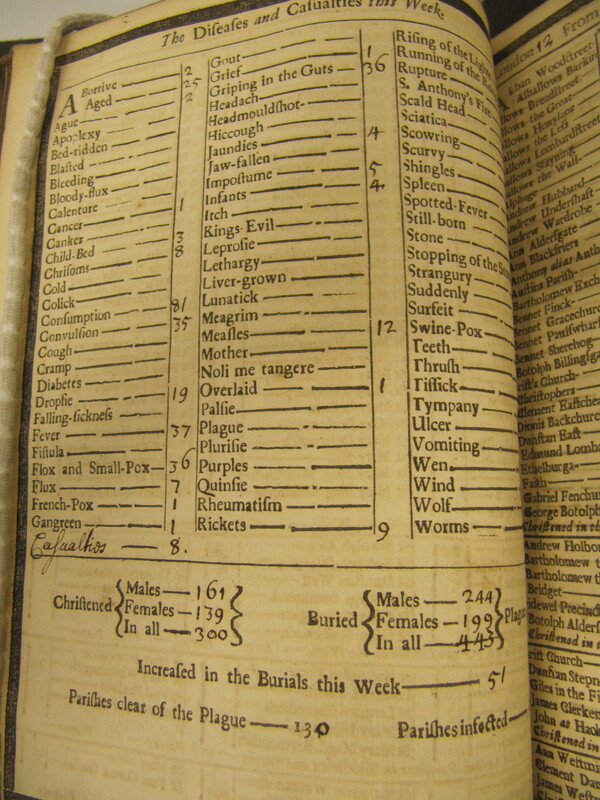 The Diseases and Casualties this Week.
Abortive — 2
Aged — 25
Ague — 2
Apoplexy
Bed-ridden
Blasted
Bleeding
Bloody-flux
Calenture
Cancer — 1
Canker
Child-Bed — 3
Chrisoms — 8
Cold
Colick
Consumption — 81
Convulsion — 35
Cough
Cramp
Diabetes
Dropsie — 19
Falling-sickness
Fever — 37
Fistula
Flox and Small-Pox — 36
Flux — 7
French-Pox — 1
Gangreen — 1
Casualties — 8.
Gout — 1
Grief
Griping in the Guts — 36
Headach
Headmouldshot
Hiccough
Jaundies — 4
Jaw-fallen
Impostume — 5
Infants — 4
Itch
Kings-Evil
Leprosie
Lethargy
Liver-grown
Lunatick
Meagrim
Measles — 12
Mother
Noli me tangere
Overlaid — 1
Palsie
Plague
Plurisie
Purples
Quinsie
Rheumatism
Rickets — 9
Rising of the
Running of the
Rupture
S. Anthony's Fire
Scald Head
Sciatica
Scowring
Scurvy
Shingles
Spleen
Spotted-Fever
Still-born
Stone
Stopping of the
Strangury
Suddenly
Surfeit
Swine-Pox
Teeth
Thrush
Tissick
Tympany
Ulcer
Vomiting
Wen
Wind
Wolf
Worms
Christened { Males — 161
Females — 139
In all — 300 }
Buried { Males — 244
Females — 199
In all — 443 } Plague
Increased in the Burials this Week — 51
Parishes clear of the Plague — 130 Parishes infected
London 12 From
Alban Woodstreet
Alhallows Barkin
Breadstreet
the Great
Honylane
the Less
Lombardstreet
Stayning
the Wall
Hubbard
Andrew Undershaft
Andrew Wardrobe
Ann Aldersgate
Ann Blackfriers
Anthony alias Anth
Austins Parish
Bartholomew Exch
Bennet Finck
Bennet Gracechur
Bennet Paulswharf
Bennet Sherehog
Botolph Billingsga
Christophers
Clement Eastchea
Dionis Backchurc
Dunstan East
Edmund Lomba
Ethelburga
Faith
Gabriel Fenchur
George Botolph
Christened in th
Andrew Holbor
Bartholomew t
Bartholomew th
Bridget
Bridewel Precinct
Botolph Alders
Christened in
Christ Church
Dunstan Stepn
Giles in the Fi
James Clerken
John at Hack
Christened in
Ann Westmi
Clement Dan
James Westm